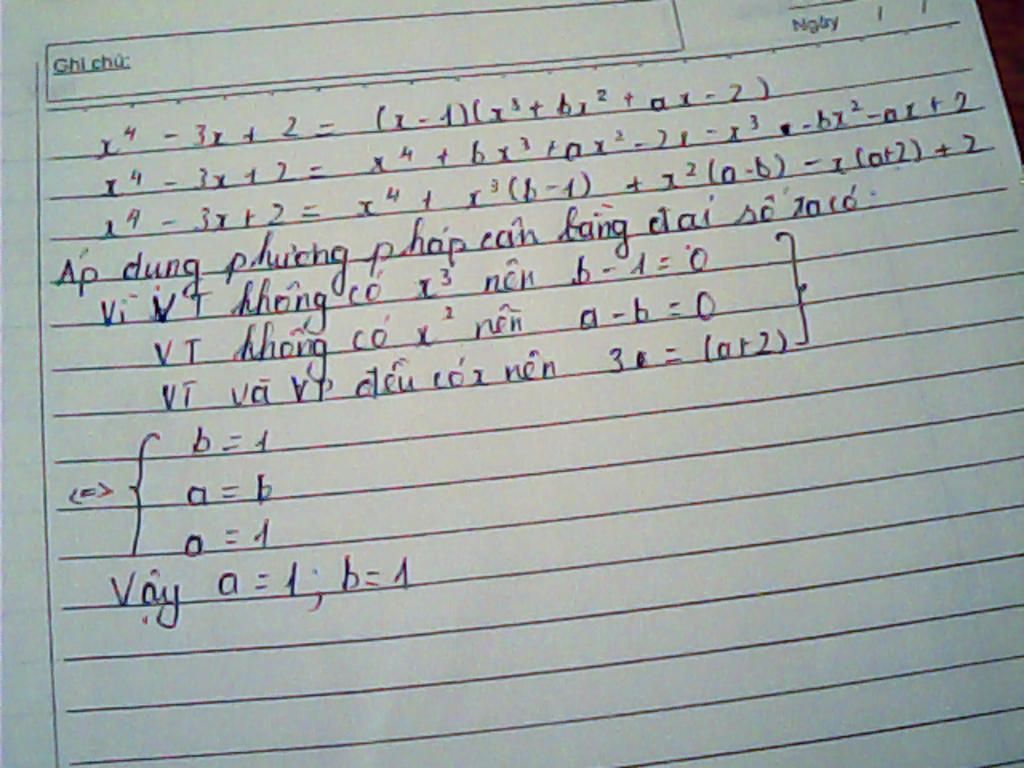 Ghi chú:
Ngày / /
x⁴ - 3x + 2 = (x - 1)(x³ + bx² + ax - 2)
x⁴ - 3x + 2 = x⁴ + bx³ + ax² - 2x - x³ - bx² - ax + 2
x⁴ - 3x + 2 = x⁴ + x³(b - 1) + x²(a - b) - x(a+2) + 2
Áp dụng phương pháp cân bằng đại số ta có:
Vì VT không có x³ nên b - 1 = 0
VT không có x² nên a - b = 0
VT và VP đều có x nên 3 = (a+2)
<=> { b = 1
a = b
a = 1
Vậy a = 1; b = 1